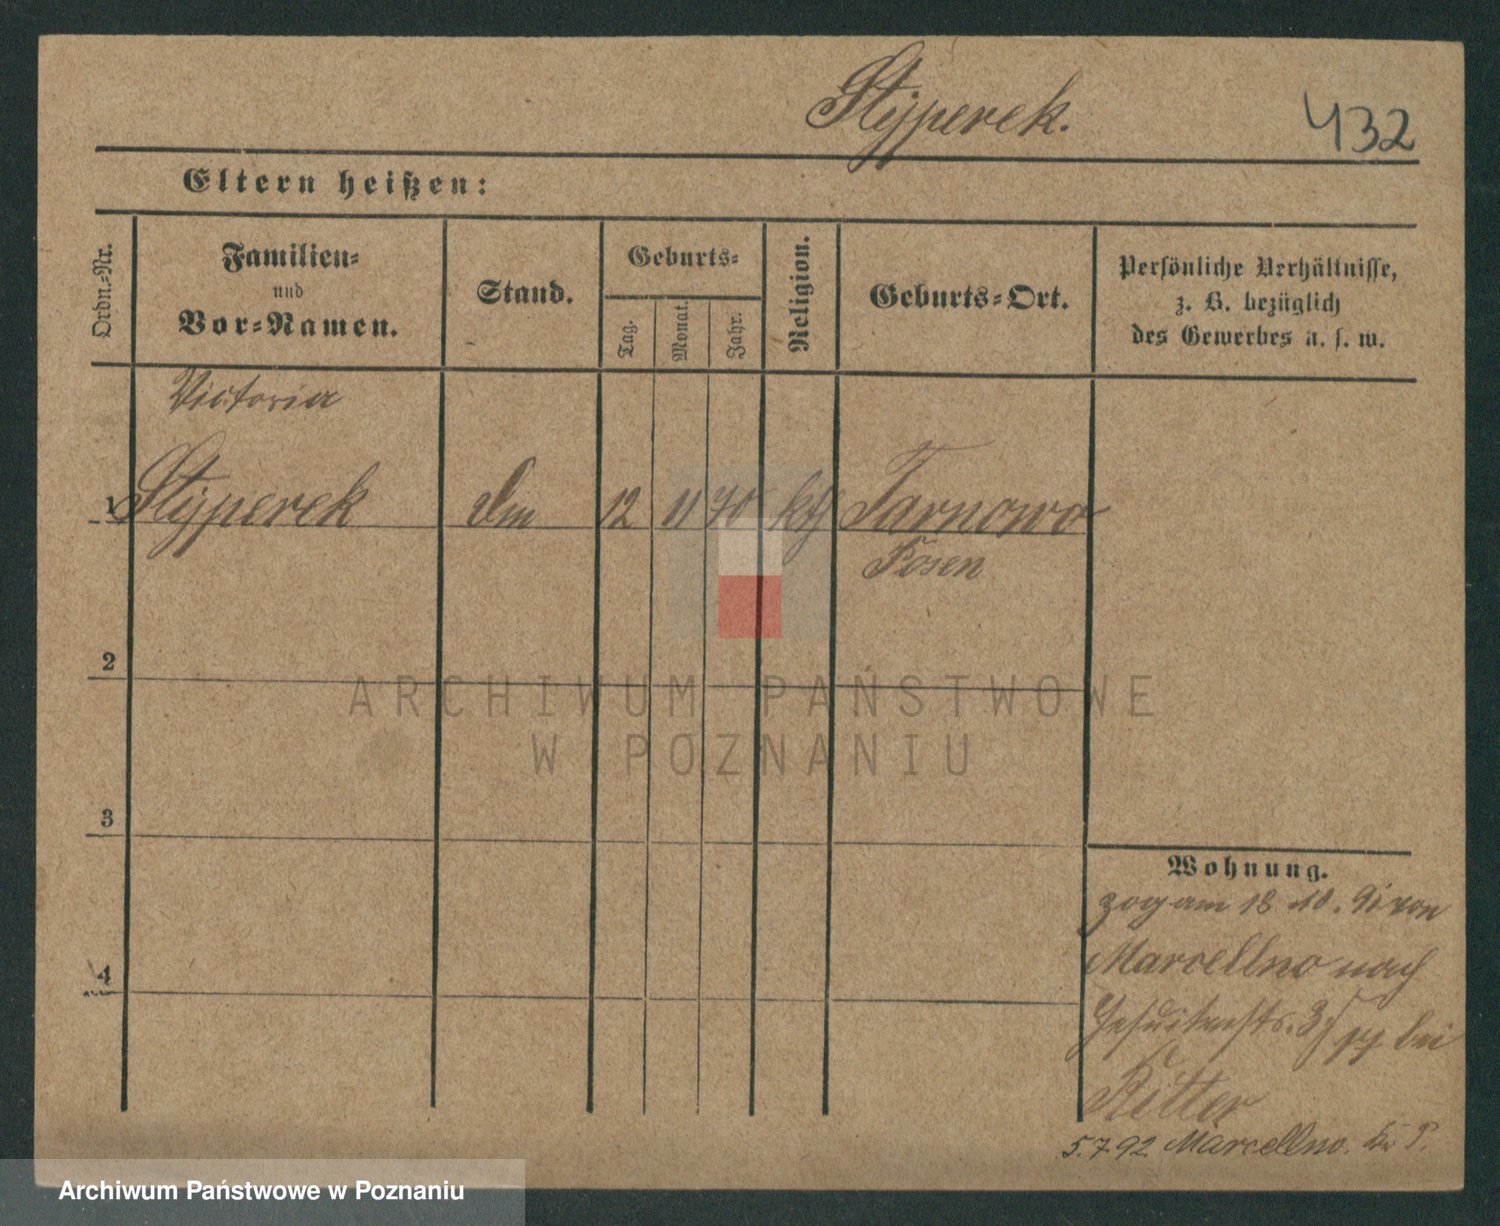 Stÿperek.
432
Eltern heißen:
Ordn.-Nr.
Familien-
und
Vor-Namen.
Stand.
Geburts-
Tag.
Monat.
Jahr.
Religion.
Geburts-Ort.
Persönliche Verhältnisse,
z. B. bezüglich
des Gewerbes u. s. w.
Victoria
1 Stÿperek 12 11 70 kth Tarnowo
Posen
2
3
4
Wohnung.
zog am 18 10. 91 von
Marcellno nach
Jesuitenstr. bei
Ritter
5.7.92 Marcellno. P.
ARCHIWUM PAŃSTWOWE
W POZNANIU
Archiwum Państwowe w Poznaniu